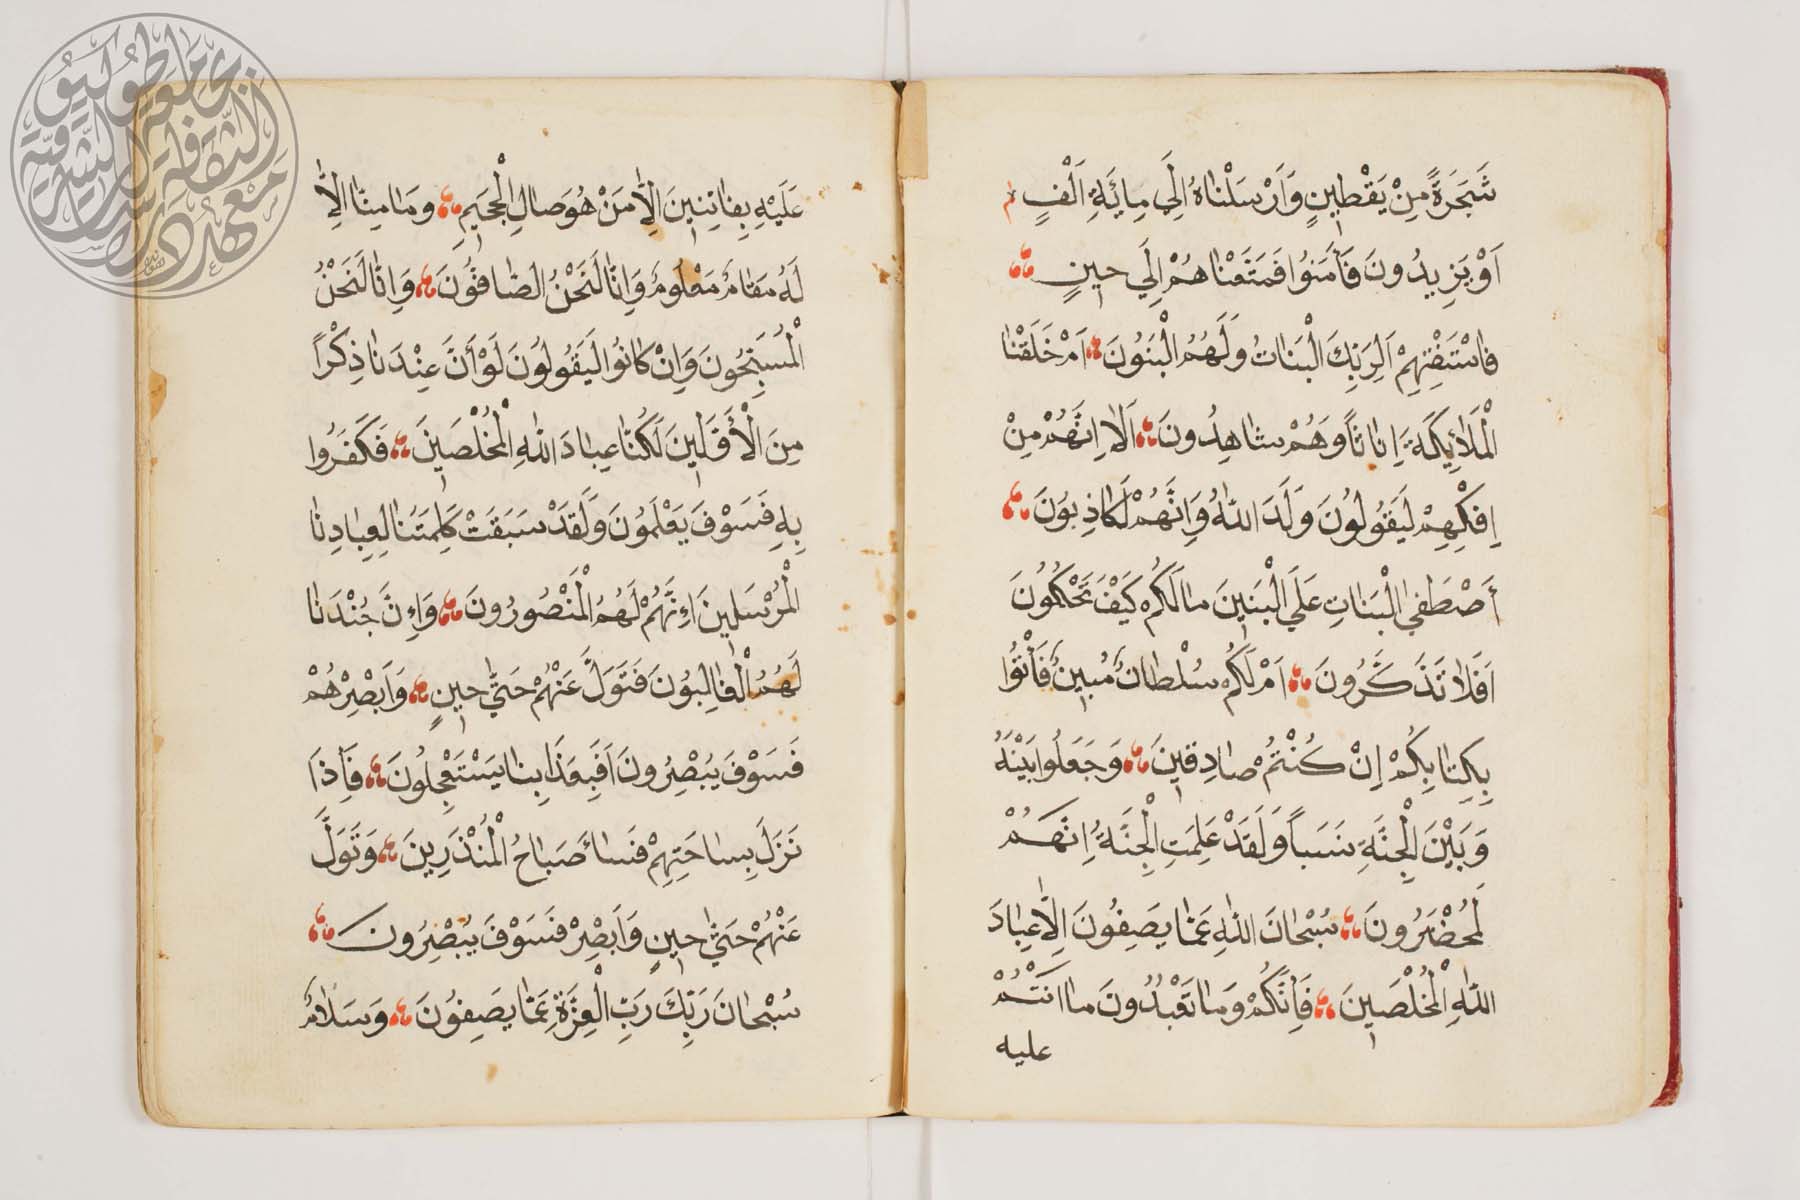 شَجَرَةً مِنْ يَقْطِينٍ وَاَرْسَلْنَاهُ اِلَي مِائَةِ اَلْفٍ
اَوْ يَزِيدُونَ فَأمَنُوا فَمَتَّعْنَاهُمْ اِلَي حِينٍ
فَاسْتَفْتِهِمْ اَلِرَبِّكَ الْبَنَاتُ وَلَهُمُ الْبَنُونَ اَمْ خَلَقْنَا
الْمَلَائِكَةَ اِنَاثًا وَهُمْ شَاهِدُونَ اَلَا اِنَّهُمْ مِنْ
اِفْكِهِمْ لَيَقُولُونَ وَلَدَ اللهُ وَاِنَّهُمْ لَكَاذِبُونَ
أَصْطَفَي الْبَنَاتِ عَلَي الْبَنِينَ مَا لَكُمْ كَيْفَ تَحْكُمُونَ
اَفَلَا تَذَكَّرُونَ اَمْ لَكُمْ سُلْطَانٌ مُبِينٌ فَأْتُوا
بِكِتَابِكُمْ اِنْ كُنْتُمْ صَادِقِينَ وَجَعَلُوا بَيْنَهُ
وَبَيْنَ الْجِنَّةِ نَسَبًا وَلَقَدْ عَلِمَتِ الْجِنَّةُ اِنَّهُمْ
لَمُحْضَرُونَ سُبْحَانَ اللهِ عَمَّا يَصِفُونَ اِلَّا عِبَادَ
اللهِ الْمُخْلَصِينَ فَاِنَّكُمْ وَمَا تَعْبُدُونَ مَا اَنْتُمْ
عليه
عَلَيْهِ بِفَاتِنِينَ اِلَّا مَنْ هُوَ صَالِ الْجَحِيمِ وَمَا مِنَّا اِلَّا
لَهُ مَقَامٌ مَعْلُومٌ وَاِنَّا لَنَحْنُ الصَّافُّونَ وَاِنَّا لَنَحْنُ
الْمُسَبِّحُونَ وَاِنْ كَانُوا لَيَقُولُونَ لَوْ أَنَّ عِنْدَنَا ذِكْرًا
مِنَ الْأَوَّلِينَ لَكُنَّا عِبَادَ اللهِ الْمُخْلَصِينَ فَكَفَرُوا
بِهِ فَسَوْفَ يَعْلَمُونَ وَلَقَدْ سَبَقَتْ كَلِمَتُنَا لِعِبَادِنَا
الْمُرْسَلِينَ اِنَّهُمْ لَهُمُ الْمَنْصُورُونَ وَاِنَّ جُنْدَنَا
لَهُمُ الْغَالِبُونَ فَتَوَلَّ عَنْهُمْ حَتَّي حِينٍ وَاَبْصِرْهُمْ
فَسَوْفَ يُبْصِرُونَ اَفَبِعَذَابِنَا يَسْتَعْجِلُونَ فَاِذَا
نَزَلَ بِسَاحَتِهِمْ فَسَاءَ صَبَاحُ الْمُنْذَرِينَ وَتَوَلَّ
عَنْهُمْ حَتَّي حِينٍ وَاَبْصِرْ فَسَوْفَ يُبْصِرُونَ
سُبْحَانَ رَبِّكَ رَبِّ الْعِزَّةِ عَمَّا يَصِفُونَ وَسَلَامٌ